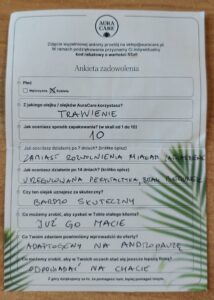 AURA
CARE
Zdjęcie wypełnionej ankiety prześlij na sklep@auracare.pl
W ramach podziękowania przyznamy Ci indywidualny
kod rabatowy o wartości 15zł!
Ankieta zadowolenia
Płeć
Mężczyzna Kobieta
Z jakiego olejku / olejków AuraCare korzystasz?
TRAWIENIE
Jak oceniasz sposób zapakowania? (w skali od 1 do 10)
10
Jak oceniasz działanie po 7 dniach? (krótko opisz)
ZAMIAST ROZWOLNIENIA MIAŁAM
Jak oceniasz działanie po 14 dniach? (krótko opisz)
UREGULOWANA PERYSTALTYKA, BRAK
Czy ten olejek uznajesz za skuteczny?
BARDZO SKUTECZNY
Co możemy zrobić, aby zyskać w Tobie stałego klienta?
JUŻ GO MACIE
Co Twoim zdaniem powinniśmy wprowadzić do oferty?
ADAPTOGENY NA ANDROPAUZĘ
Co możemy zrobić, aby w Twoich oczach stać się jeszcze lepszą firmą?
ODPOWIADAĆ NA CHACIE